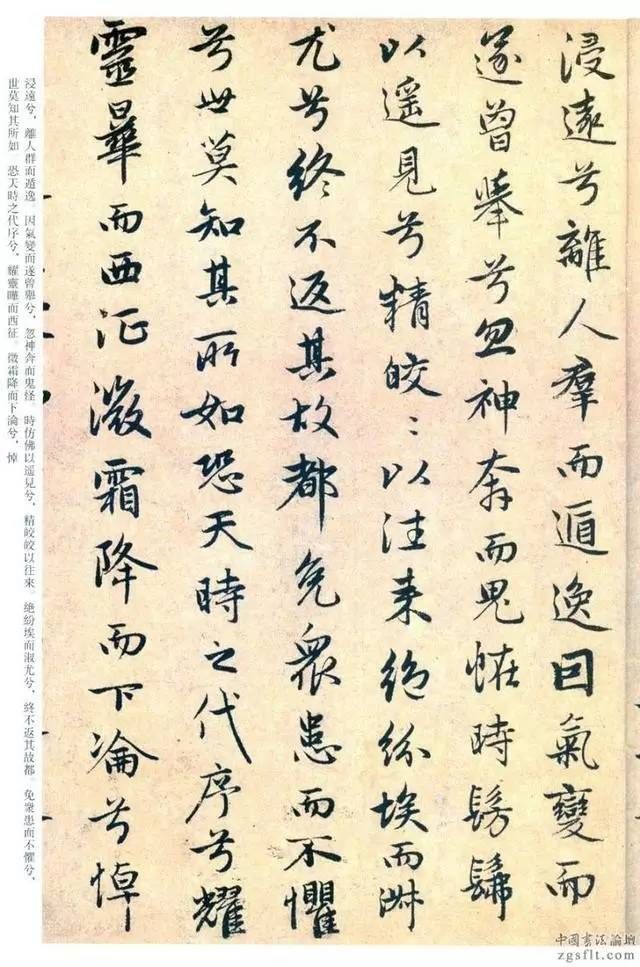 浸遠兮離人羣而遁逸因氣變而
遂曾舉兮忽神奔而鬼恠時髣髴
以遥見兮精皎〻以往来絶紛埃而淑
尤兮終不返其故都免衆患而不懼
兮世莫知其所如恐天時之代序兮耀
靈曅而西征微霜降而下淪兮悼
浸遠兮，離人群而遁逸 因氣變而遂曾舉兮，忽神奔而鬼怪 時仿佛以遥見兮，精皎皎以往來。絶紛埃而淑尤兮，終不返其故都。免衆患而不懼兮，
世莫知其所如 恐天時之代序兮，耀靈曄而西征。微霜降而下淪兮，悼
中國書法論壇
zgsflt.com